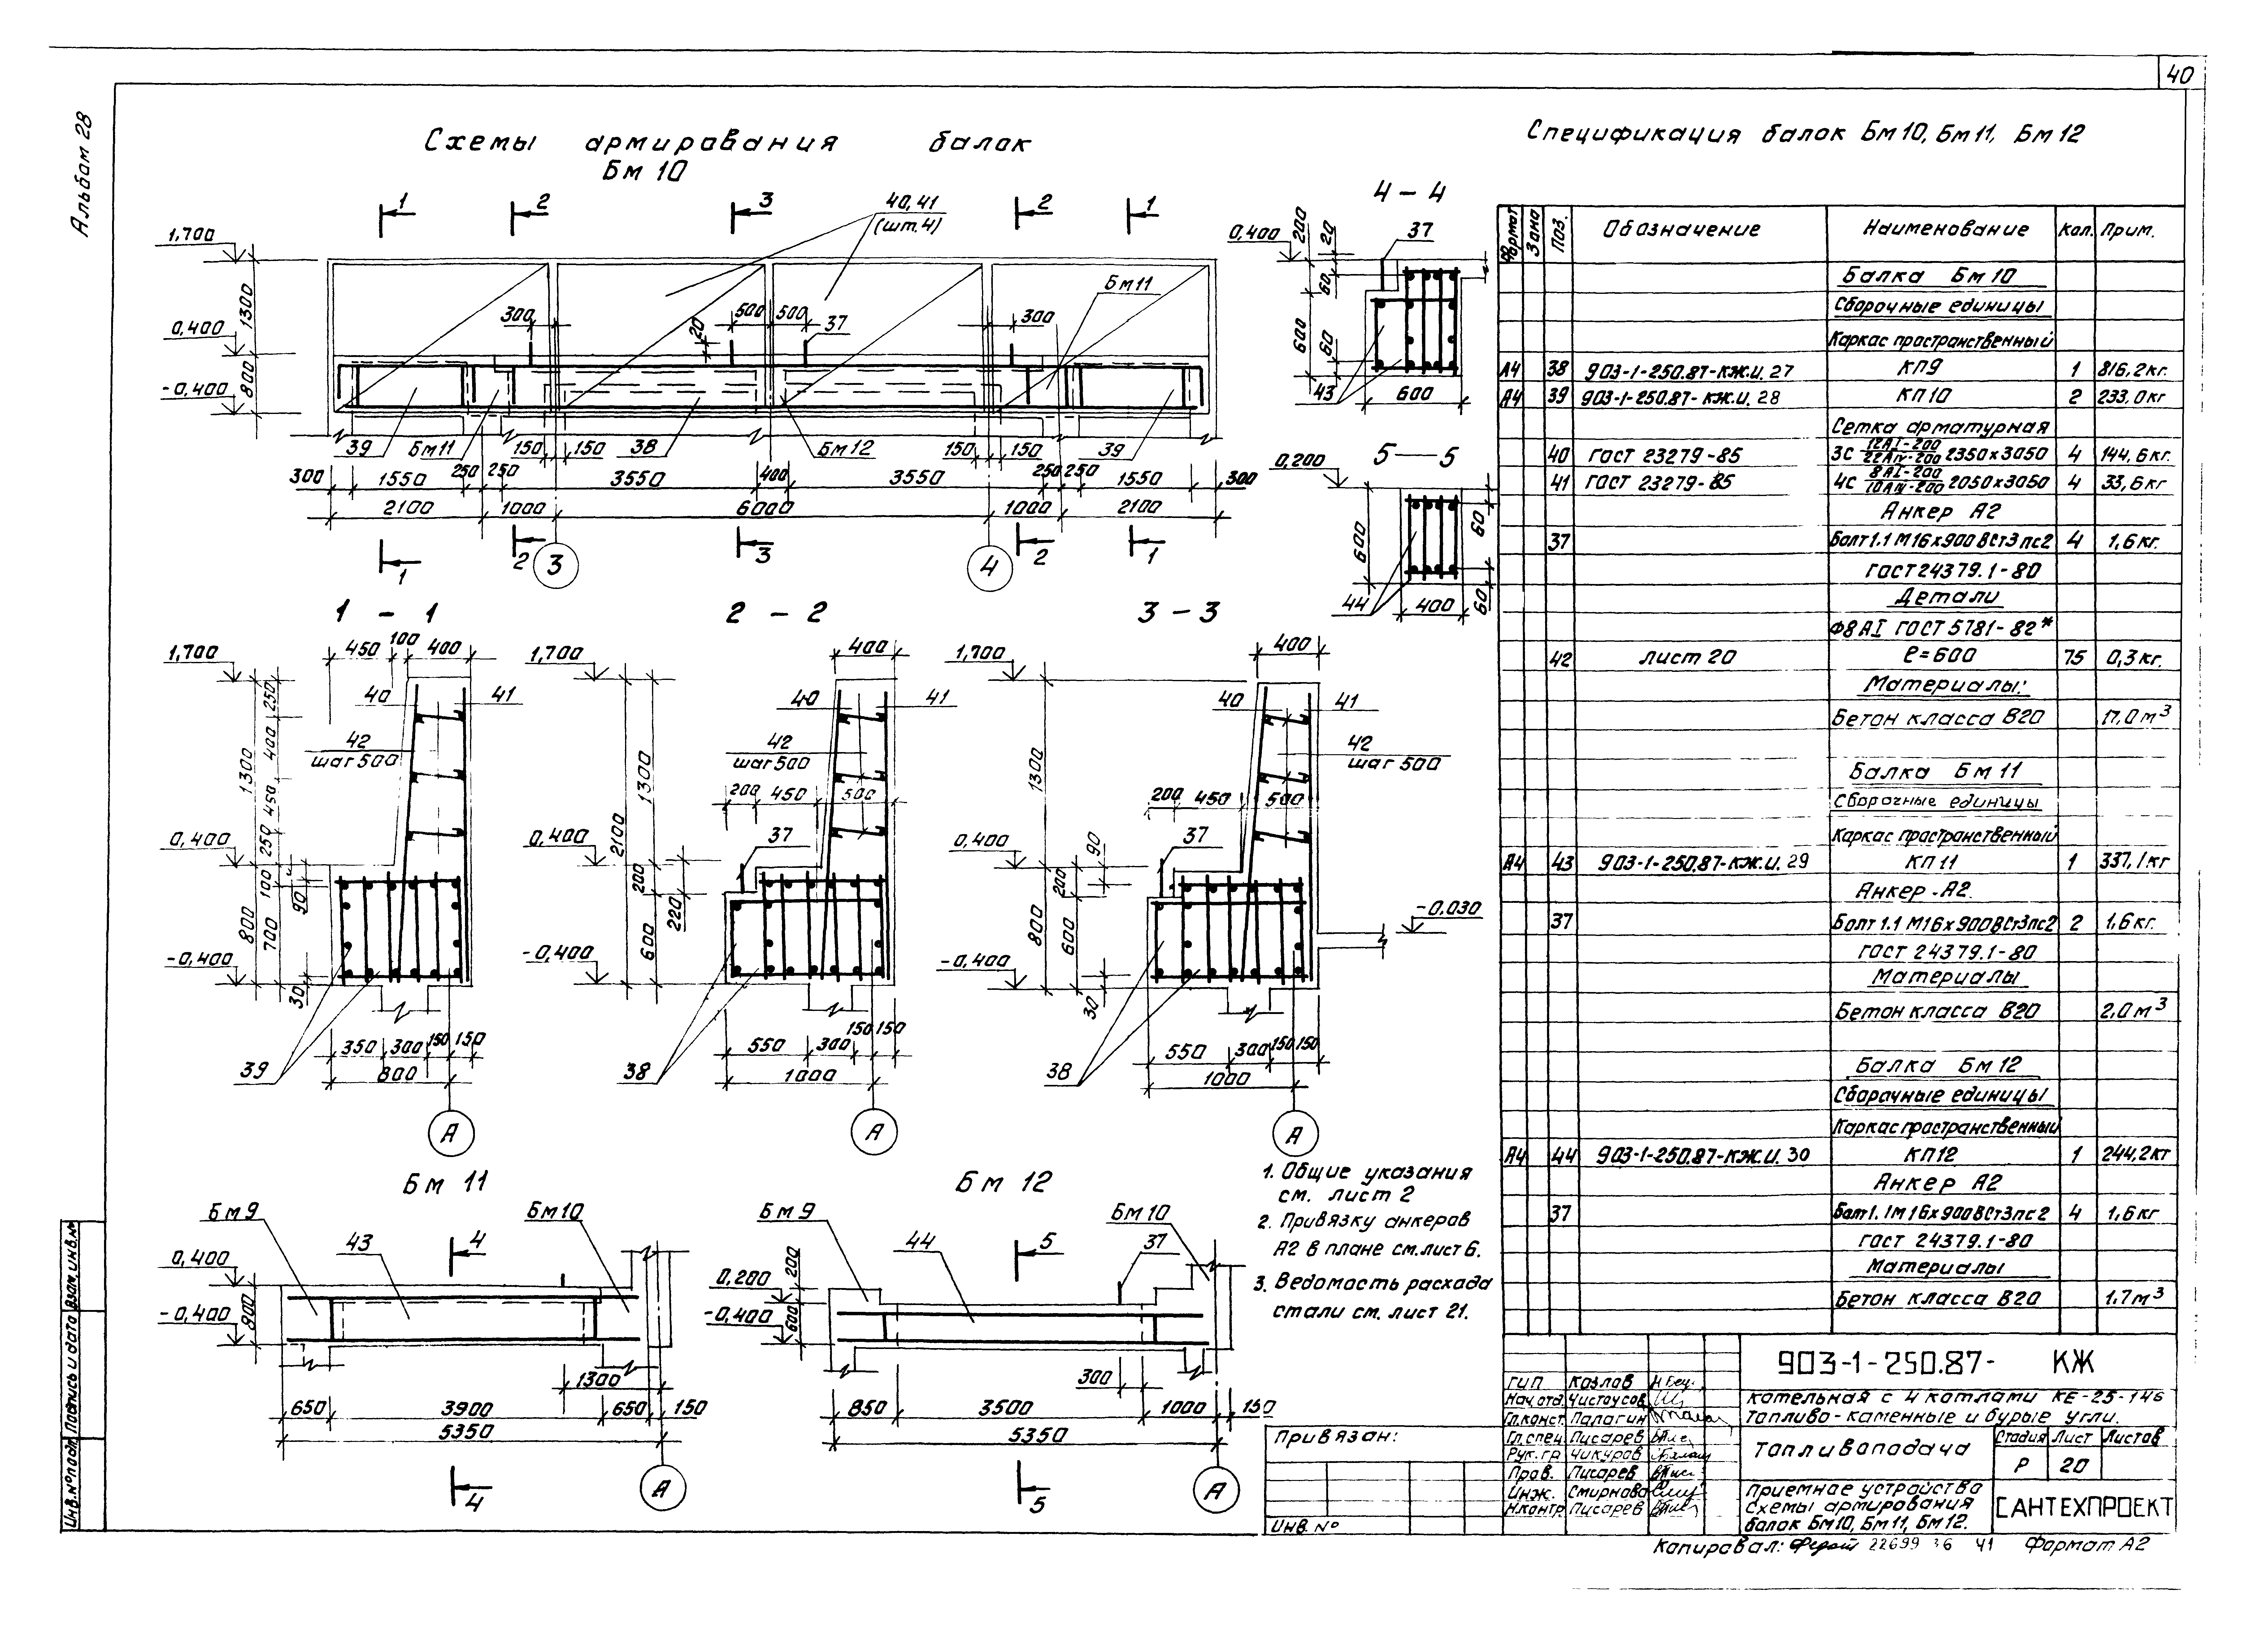 40
Альбом 28
Схемы армирования балок
Бм 10
1
2
3
40,41
(шт.4)
2
1
1,700
0,400
-0,400
1300
800
300
500
500
37
20
300
Бм11
39
Бм11
150
150
38
Бм12
150
150
39
300
1550
250
250
3550
400
3550
250
250
1550
300
2100
1000
6000
1000
2100
1
2
3
3
4
2
1
4-4
0,400
200
20
60
37
600
60
43
600
5-5
0,200
600
60
60
44
400
1-1
450
100
400
1,700
40
41
42
шаг 500
1300
250
400
450
250
0,400
100
90
800
700
-0,400
30
350
300
150
150
39
800
А
2-2
400
1,700
40
41
42
шаг 500
2100
1300
200
450
500
37
0,400
200
220
600
-0,400
550
300
150
150
38
1000
А
3-3
400
1,700
40
41
42
шаг 500
1300
200
450
500
37
0,400
90
200
800
600
-0,030
-0,400
30
550
300
150
150
38
1000
А
Бм 11
Бм9
Бм10
43
4
0,400
-0,400
800
1300
650
3900
650
150
5350
4
А
Бм 12
Бм9
Бм10
44
5
37
0,200
200
-0,400
600
300
850
3500
1000
150
5350
5
А
1. Общие указания
см. лист 2
2. Привязку анкеров
А2 в плане см. лист 6.
3. Ведомость расхода
стали см. лист 21.
Спецификация балок Бм10, Бм11, Бм12
Формат Зона Поз. Обозначение Наименование Кол. Прим.
Балка Бм10
Сборочные единицы
Каркас пространственный
А4 38 903-1-250.87-КЖ.И. 27 КП9 1 816,2кг.
А4 39 903-1-250.87-КЖ.И. 28 КП10 2 233,0кг
Сетка арматурная
40 ГОСТ 23279-85 3С 12АI-200/22АIV-200 2350х3050 4 144,6кг.
41 ГОСТ 23279-85 4С 8АI-200/10АIV-200 2050х3050 4 33,6кг
Анкер А2
37 Болт 1.1 М16х900 ВСт3пс2 4 1,6кг.
ГОСТ 24379.1-80
Детали
Ф8АI ГОСТ 5781-82*
42 лист 20 ℓ=600 75 0,3кг.
Материалы:
Бетон класса В20 17,0м³
Балка Бм11
Сборочные единицы
Каркас пространственный
А4 43 903-1-250.87-КЖ.И. 29 КП11 1 337,1кг
Анкер-А2
37 Болт 1.1 М16х900ВСт3пс2 2 1,6кг.
ГОСТ 24379.1-80
Материалы
Бетон класса В20 2,0м³
Балка Бм12
Сборочные единицы
Каркас пространственный
А4 44 903-1-250.87-КЖ.И. 30 КП12 1 244,2кг
Анкер А2
37 Болт 1.1М16х900ВСт3пс2 4 1,6кг
ГОСТ 24379.1-80
Материалы
Бетон класса В20 1.7м³
903-1-250.87- КЖ
Котельная с 4 котлами КЕ-25-14с
Топливо-каменные и бурые угли.
ГИП Козлов
Нач.отд. Чистоусов
Гл.конст. Палагин
Гл.спец. Писарев
Рук.гр. Чикуров
Пров. Писарев
Инж. Смирнова
Н.контр. Писарев
Топливоподача
Стадия Лист Листов
Р 20
Приемное устройство
Схемы армирования
балок Бм10, Бм11, Бм12.
САНТЕХПРОЕКТ
Привязан:
Инв. №
Копировал: 22699 36 41 Формат А2
Инв.№подл. Подпись и дата Взам.инв.№